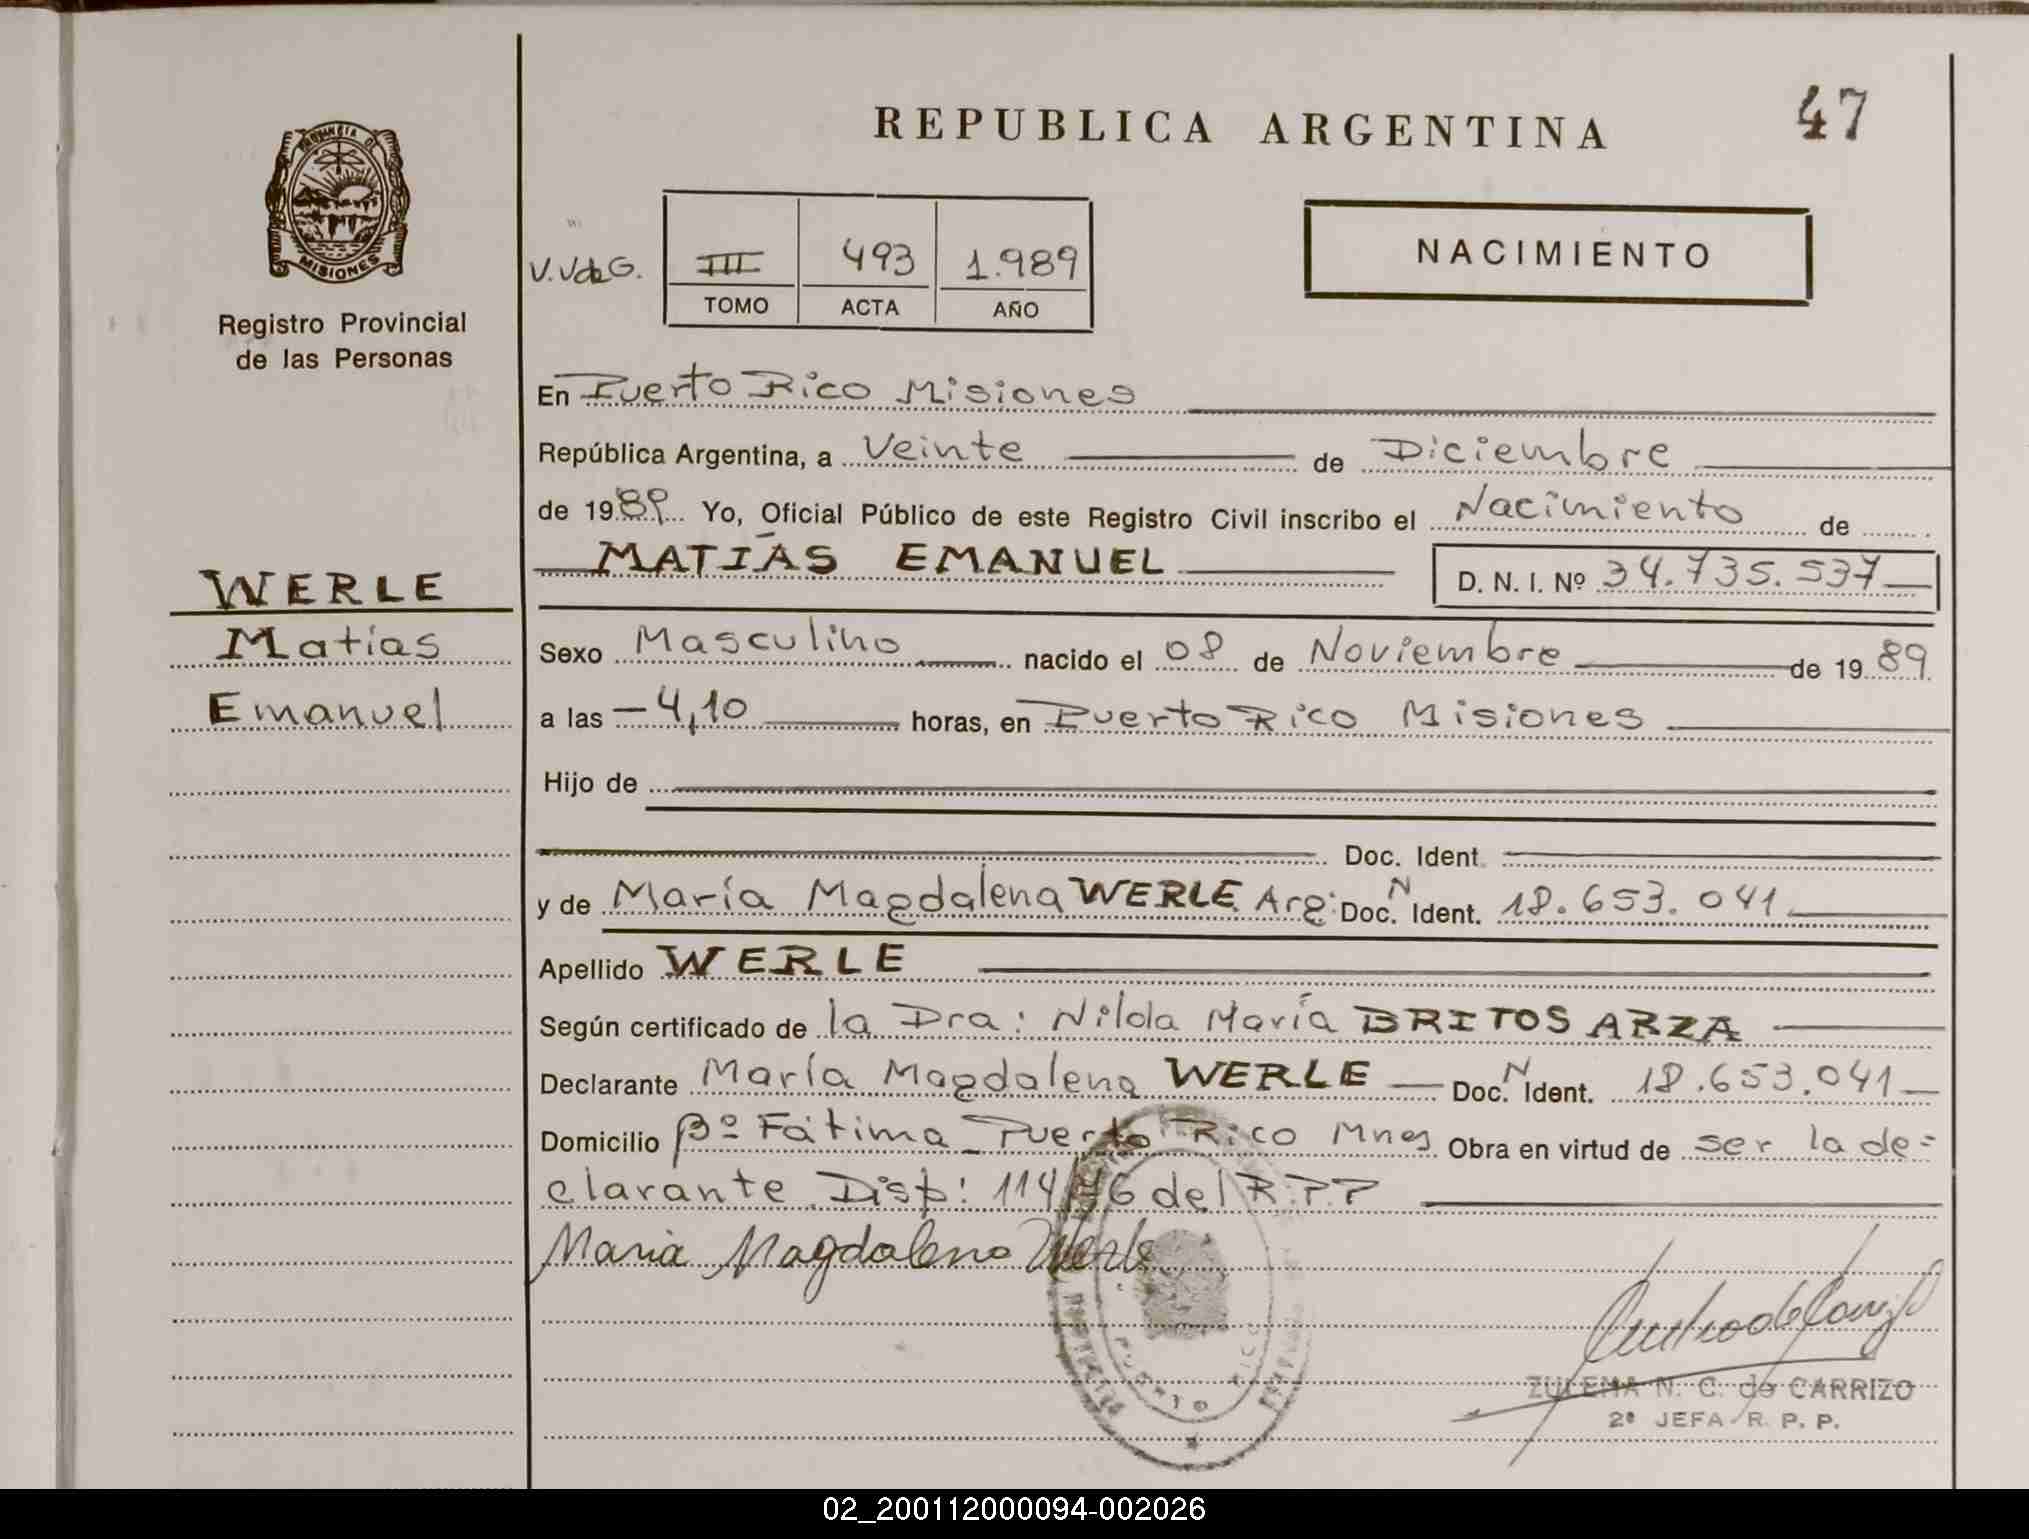 REPUBLICA ARGENTINA
47
PROVINCIA DE
MISIONES
Registro Provincial
de las Personas
V.VdeG.
III 493 1.989
TOMO ACTA AÑO
NACIMIENTO
En Puerto Rico Misiones
República Argentina, a Veinte de Diciembre
de 1989 Yo, Oficial Público de este Registro Civil inscribo el Nacimiento de
MATIAS EMANUEL D. N. I. Nº 34.735.537
WERLE
Matías
Emanuel
Sexo Masculino nacido el 08 de Noviembre de 1989
a las 4,10 horas, en Puerto Rico Misiones
Hijo de
Doc. Ident.
y de María Magdalena WERLE Arg: Doc. N Ident. 18.653.041
Apellido WERLE
Según certificado de la Dra: Nilda María BRITOS ARZA
Declarante María Magdalena WERLE Doc. N Ident. 18.653.041
Domicilio Bº Fátima Puerto Rico Mnes Obra en virtud de ser la de=
clarante Disp: 114/46 del R.P.P
Maria Magdalena Werle
PUERTO RICO
ZULEMA N. C. de CARRIZO
2ª JEFA R. P. P.
02_200112000094-002026